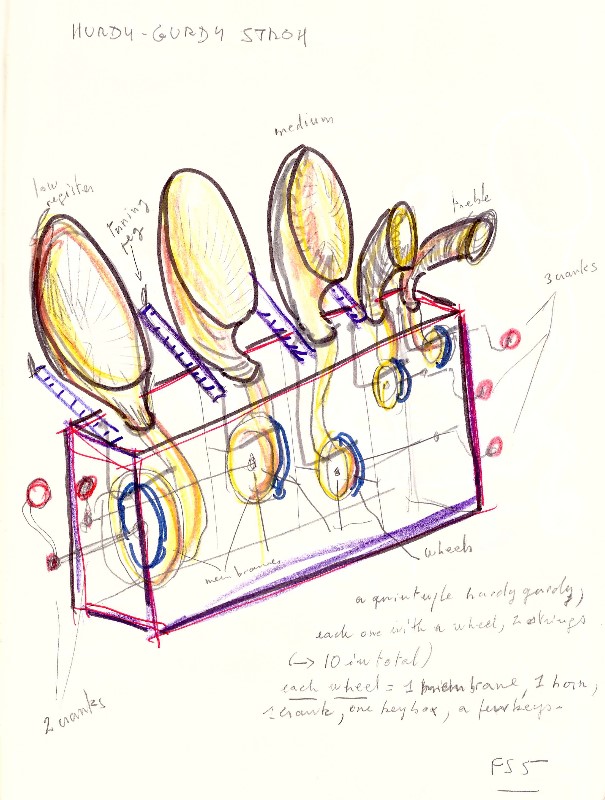 HURDY-GURDY STROH
medium
low
register
tuning
peg
treble
3 cranks
membranes
wheels
a quintuple hurdy gurdy,
each one with a wheel, 2 strings
(→ 10 in total)
each wheel = 1 membrane, 1 horn,
1 crank, one keybox, a few keys.
2 cranks
FS 5